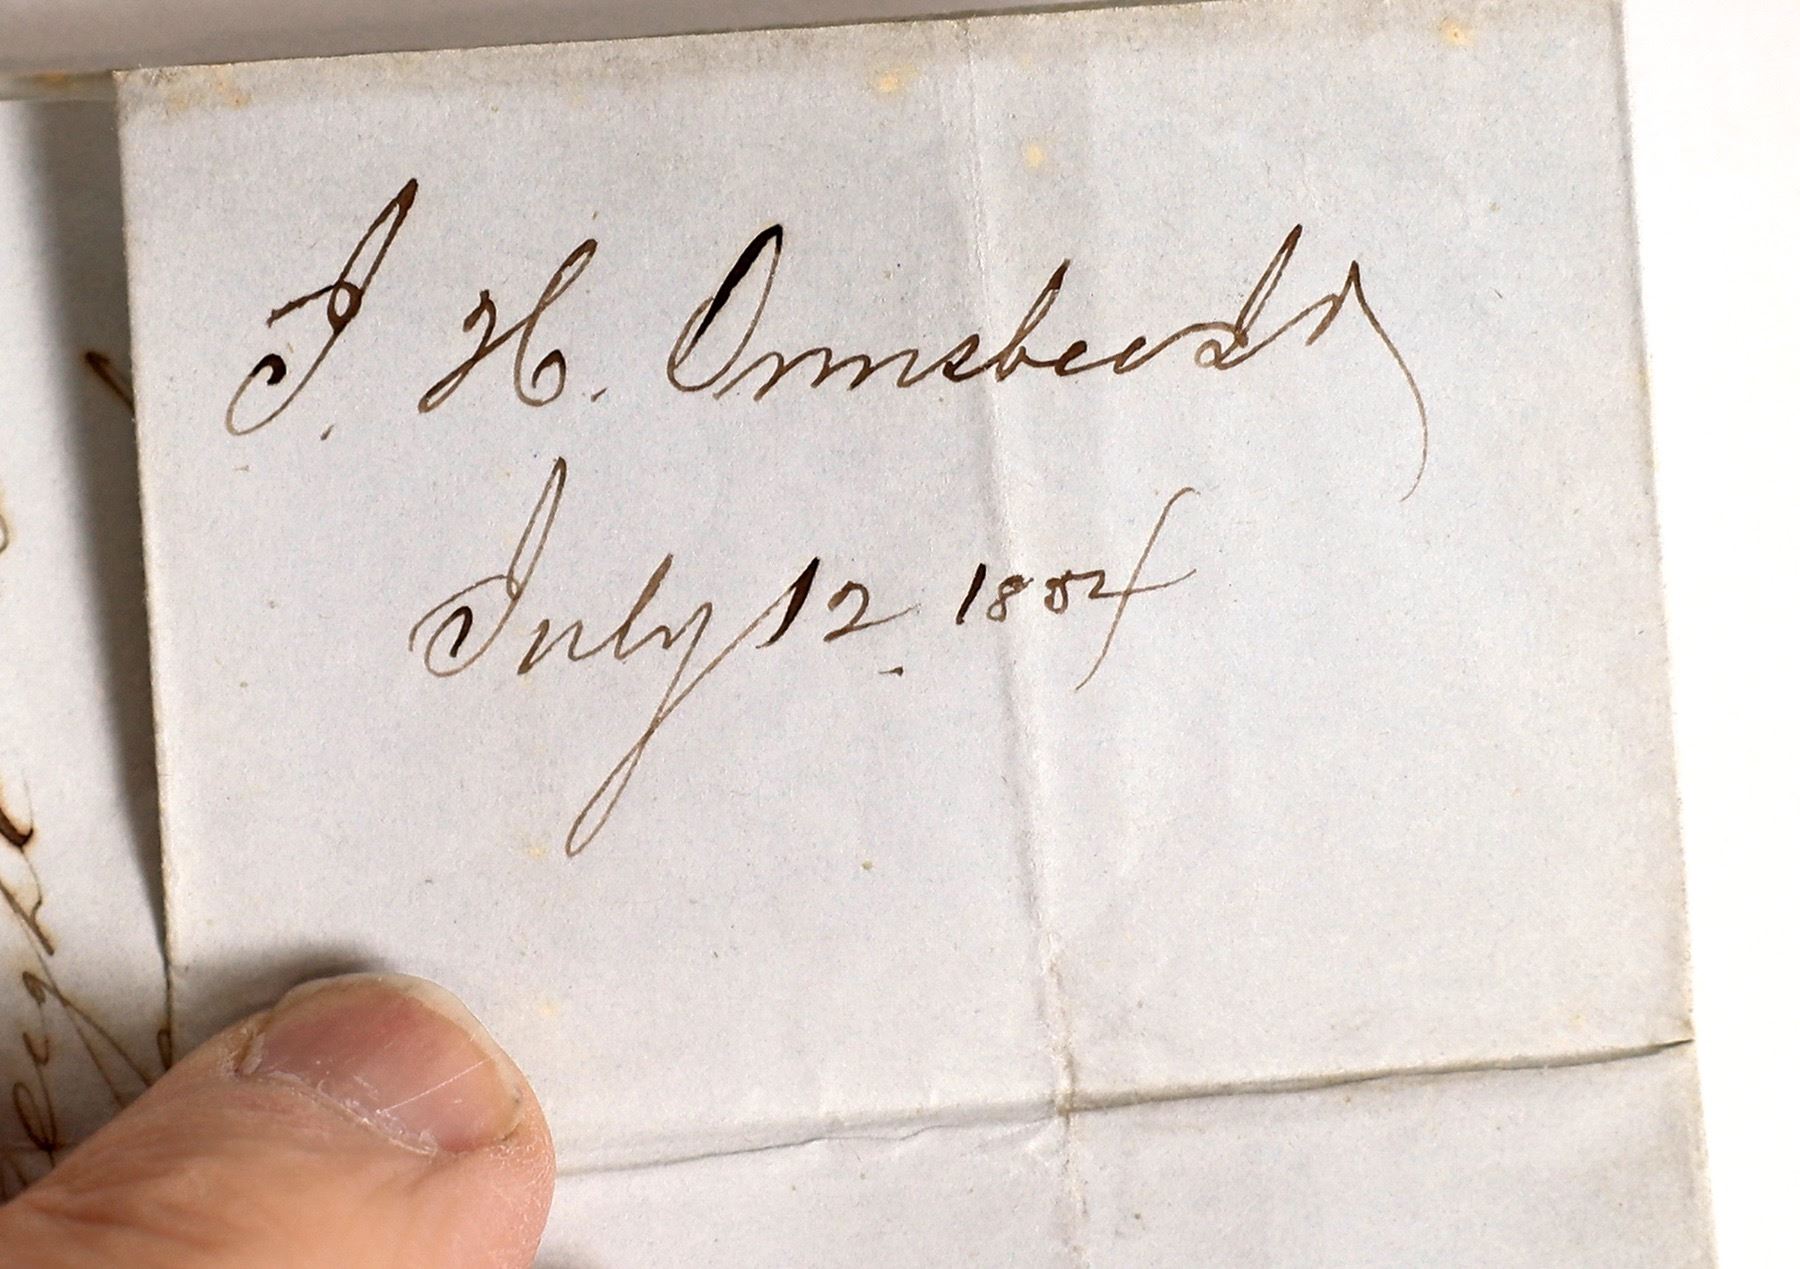 J. H. Ormsbee Jr
July 12. 1854